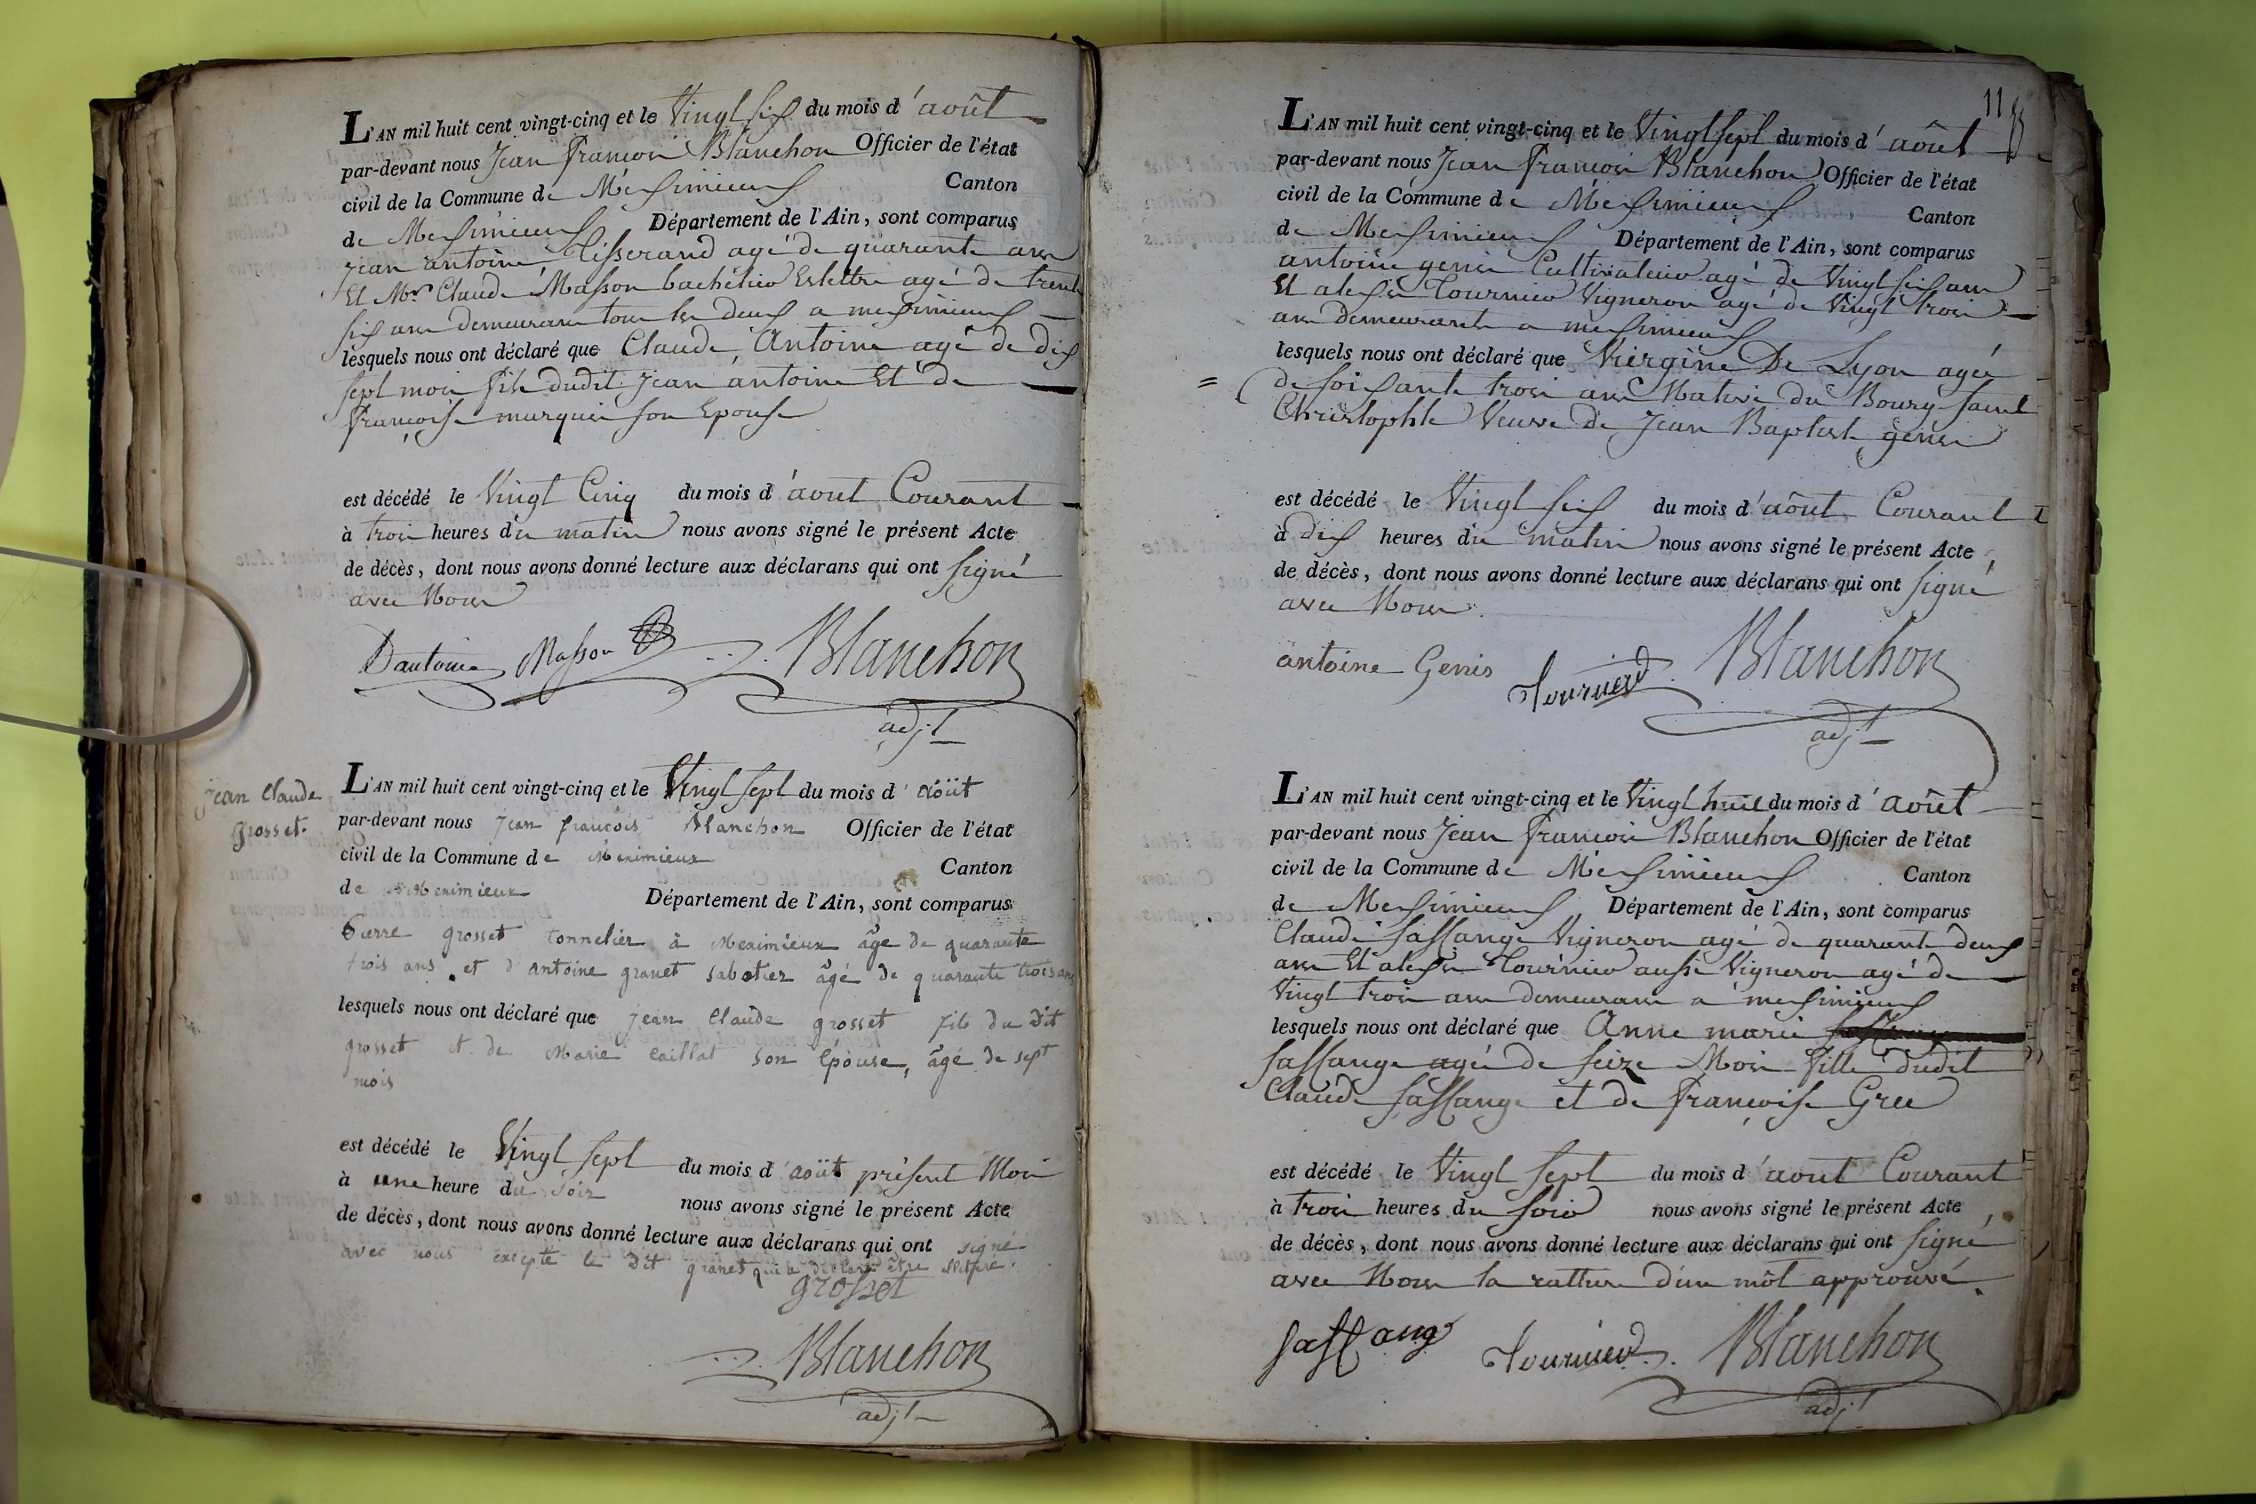 L'AN mil huit cent vingt-cinq et le Vingt six du mois d'août
par-devant nous Jean François Blanchon Officier de l'état
civil de la Commune de Meximieux Canton
de Meximieux Département de l'Ain, sont comparus
Jean antoine tisserand agé de quarante ans
Et Mr Claude Masson bachélier Eslettre agé de trente
six ans demeurans tous les deux a meximieux
lesquels nous ont déclaré que Claude Antoine agé de dix
sept mois fils dudit Jean antoine Et de
françoise marquis son Epouse
est décédé le Vingt Cinq du mois d'aout Courant
à trois heures du matin nous avons signé le présent Acte
de décès, dont nous avons donné lecture aux déclarans qui ont signé
avec Nous
Dantoine Masson Blanchon
adjt
jean Claude
grosset.
L'AN mil huit cent vingt-cinq et le Vingt sept du mois d'août
par-devant nous jean françois Blanchon Officier de l'état
civil de la Commune de Meximieux Canton
de Meximieux Département de l'Ain, sont comparus
Pierre grosset tonnelier à Meximieux âge de quarante
trois ans et d'antoine granet sabotier âgé de quarante trois ans
lesquels nous ont déclaré que jean Claude grosset fils du dit
grosset et de Marie caillat son Epouse, âgé de sept
mois
est décédé le Vingt sept du mois d'août présent Mois
à une heure du soir nous avons signé le présent Acte
de décès, dont nous avons donné lecture aux déclarans qui ont signé
avec nous excepté le dit granet qui a déclaré être
grosset
Blanchon
adjt
11
L'AN mil huit cent vingt-cinq et le Vingt sept du mois d'août
par-devant nous Jean françois Blanchon Officier de l'état
civil de la Commune de Meximieux Canton
de Meximieux Département de l'Ain, sont comparus
antoine genis Cultivateur agé de Vingt six ans
Et alexis Tournier Vigneron agé de Vingt trois
ans demeurants a meximieux
lesquels nous ont déclaré que Viergine De Lyon agée
= de soixante trois ans Native du Bourg saint
Christophle Veuve de Jean Baptiste genis
est décédé le Vingt six du mois d'août Courant
à dix heures du matin nous avons signé le présent Acte
de décès, dont nous avons donné lecture aux déclarans qui ont signé
avec Nous
antoine Genis Tournier Blanchon
adjt
L'AN mil huit cent vingt-cinq et le Vingt huit du mois d'août
par-devant nous Jean françois Blanchon Officier de l'état
civil de la Commune de Meximieux Canton
de Meximieux Département de l'Ain, sont comparus
Claude sassange Vigneron agé de quarante deux
ans Et alexis Tournier aussi Vigneron agé de
Vingt trois ans demeurans a meximieux
lesquels nous ont déclaré que Anne marie
sassange agée de seize Mois fille dudit
Claude sassange et de françoise Gree
est décédé le Vingt sept du mois d'aout Courant
à trois heures du soir nous avons signé le présent Acte
de décès, dont nous avons donné lecture aux déclarans qui ont signé
avec Nous la rature d'un môt approuvé.
sassange Tournier Blanchon
adjt